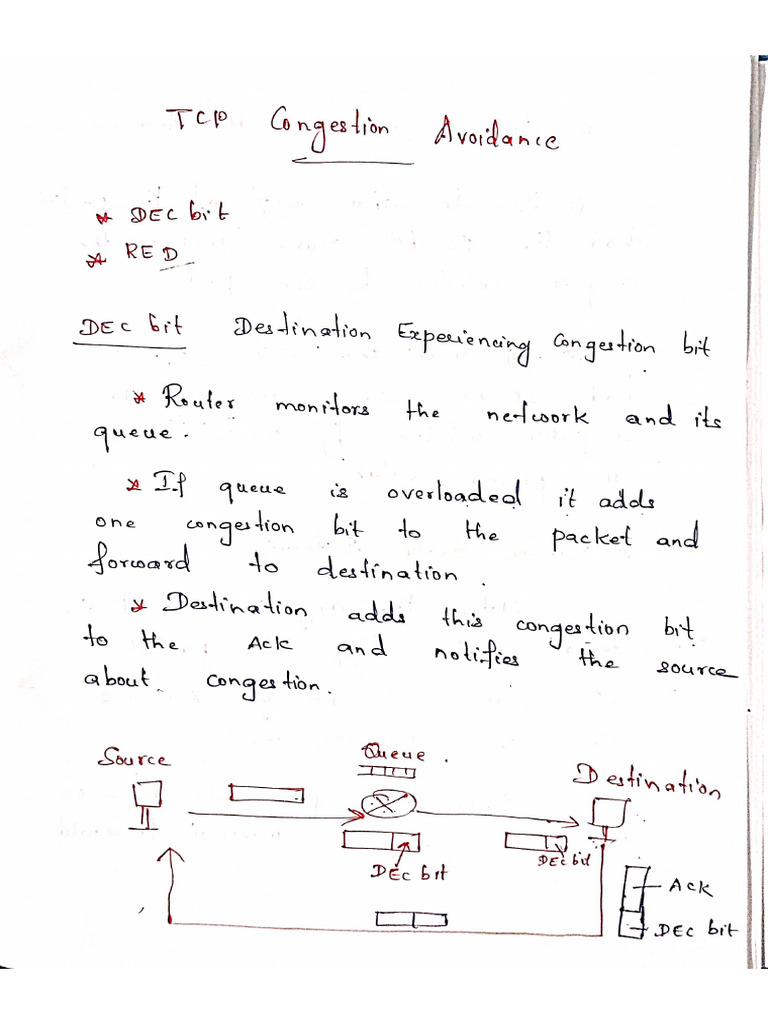 TCP Congestion Avoidance
* DEC bit
* RED
DEC bit Destination Experiencing Congestion bit
* Router monitors the network and its
queue.
* If queue is overloaded it adds
one congestion bit to the packet and
forward to destination.
* Destination adds this congestion bit
to the Ack and notifies the source
about congestion.
Source
Queue
Destination
DEC bit
DEC bit
Ack
DEC bit